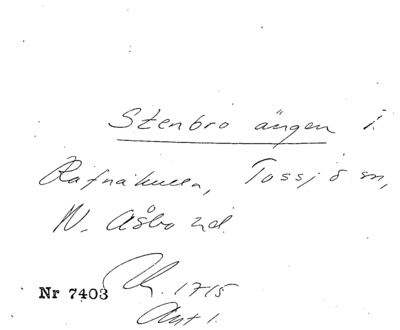 Stenbro ängen i.
Rafnakulla, Tossjö sn,
N. Åsbo hd.
Nr 7403 Ch. 1715
Akt 1.